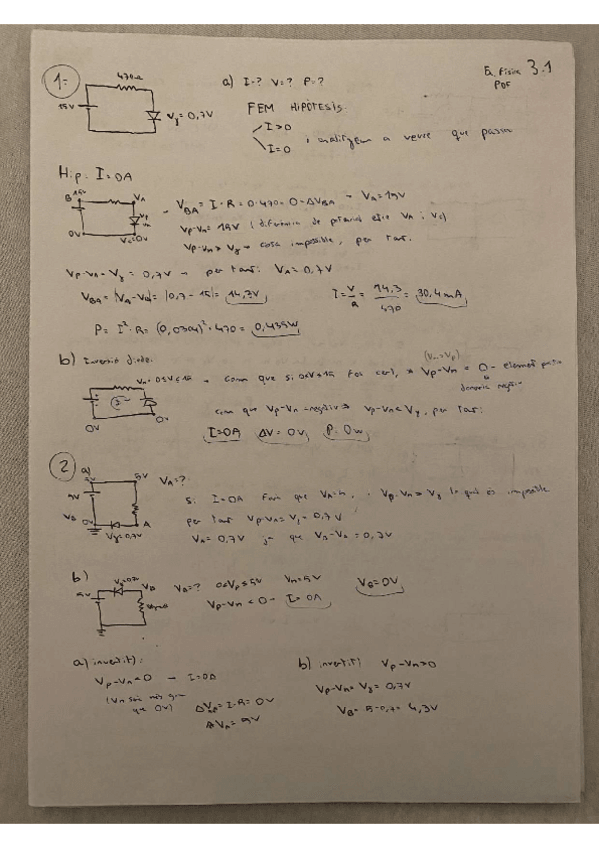 Ex. Física 3.1
PDF
1-
470Ω
15V
Vγ = 0,7V
a) I=? V=? P=?
FEM HIPÒTESIS
I>0
I=0
i analitzem a veure que passa
Hip: I=0A
B 15V
VA
Vp
Vn
0V
Vc=0V
VBA = I·R = 0·470 = 0 = ΔVBA → VA = 15V
Vp-Vn = 15V (diferència de potencial entre VA i Vc)
Vp-Vn > Vγ → cosa impossible, per tant:
Vp-Vn = Vγ = 0,7V → per tant: VA = 0,7V
VBA = |VA-VB| = |0,7-15| = 14,3V
I = V/R = 14,3/470 = 30,4mA
P = I²·R = (0,0304)²·470 = 0,435W
b) Invertir díode:
0V
0V
Com que si 0≤V≤15
(Vn>Vp)
Vp-Vn = 0 - element positiu
donarà negatiu
com que Vp-Vn = negatiu ⇒ Vp-Vn < Vγ, per tant:
I=0A ΔV=0V P=0W
2
a)
5V
5V
VB
0V
A
Vγ=0,7V
VA=?
Si I=0A Fa que Vp-Vn > Vγ la qual és impossible
per tant Vp-Vn = Vγ = 0,7V
VA = 0,7V ja que
b)
Vγ=0,7V
VB
5V
VB=? 0≤Vp≤5V Vn=5V VB=0V
Vp-Vn < 0 → I=0A
a) invertit):
Vp-Vn<0 → I=0A
que 0V)
= I·R = 0V
= 5V
b) invertit) Vp-Vn>0
Vp-Vn = Vγ = 0,7V
VB = 5-0,7 = 4,3V